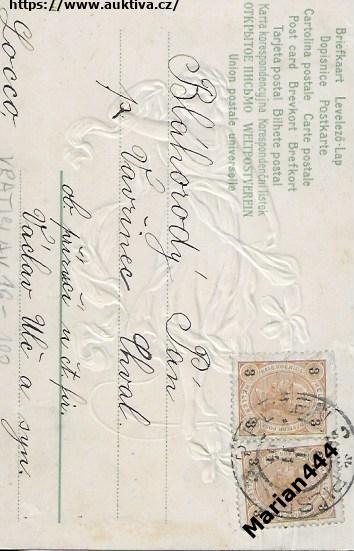 https://www.auktiva.cz/
Briefkaart Levelező-Lap
Dopisnice Postkarte
Cartolina postale Carte postale
Post card Brevkort Brefkort
Tarjeta postal Bilhete postal
Karta korespondencyjna Korespondenční lístek
ОТКРЫТОЕ ПИСЬМО WELTPOSTVEREIN
Union postale universelle
Bláhorodý Pán
p.
Vavřinec Chval
ob. přísaž. u čt. fir.
Václav a syn.
Locco
3
3
3
3
Marian444